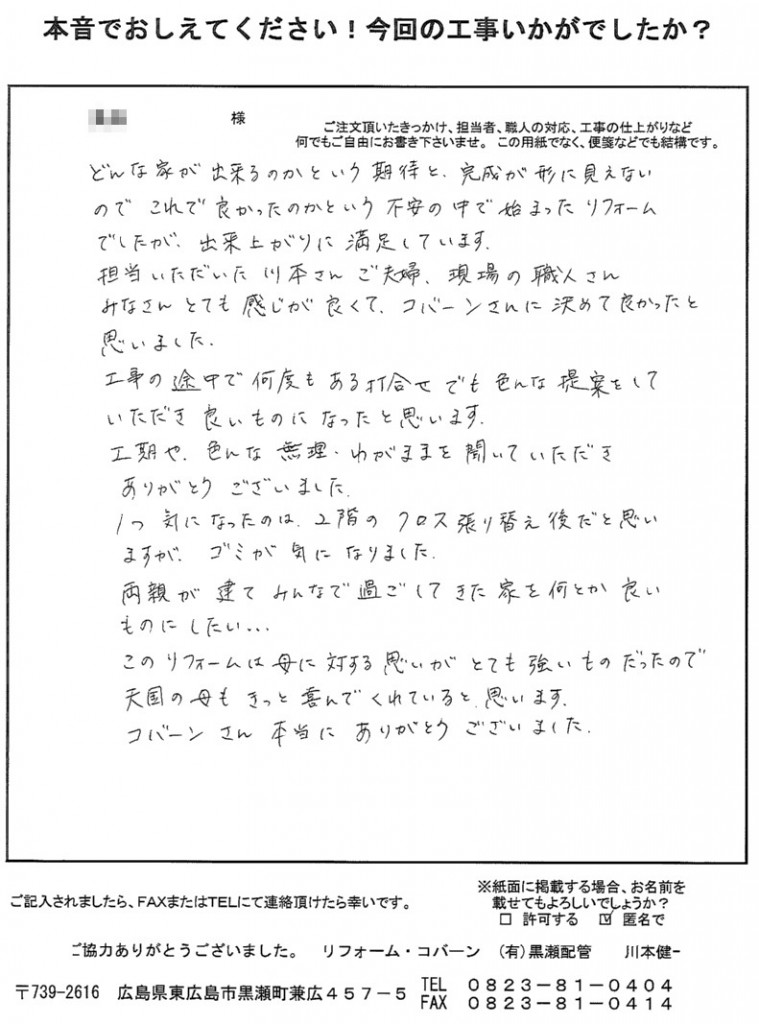 本音でおしえてください！今回の工事いかがでしたか？
様
ご注文頂いたきっかけ、担当者、職人の対応、工事の仕上がりなど
何でもご自由にお書き下さいませ。この用紙でなく、便箋などでも結構です。
どんな家が出来るのかという期待と、完成が形に見えない
のでこれで良かったのかという不安の中で始まったリフォーム
でしたが、出来上がりに満足しています。
担当いただいた川本さんご夫婦、現場の職人さん
みなさんとても感じが良くて、コバーンさんに決めて良かったと
思いました。
工事の途中で何度もある打合せでも色んな提案をして
いただき良いものになったと思います。
工期や、色んな無理・わがままを聞いていただき
ありがとうございました。
1つ気になったのは、2階のクロス張り替え後だと思い
ますが、ゴミが気になりました。
両親が建てみんなで過ごしてきた家を何とか良い
ものにしたい…
このリフォームは母に対する思いがとても強いものだったので
天国の母もきっと喜んでくれていると思います。
コバーンさん本当にありがとうございました。
ご記入されましたら、FAXまたはTELにて連絡頂けたら幸いです。
※紙面に掲載する場合、お名前を
載せてもよろしいでしょうか？
□ 許可する ☑ 匿名で
ご協力ありがとうございました。 リフォーム・コバーン （有）黒瀬配管 川本健一
〒739-2616 広島県東広島市黒瀬町兼広４５７－５ TEL ０８２３－８１－０４０４
FAX ０８２３－８１－０４１４